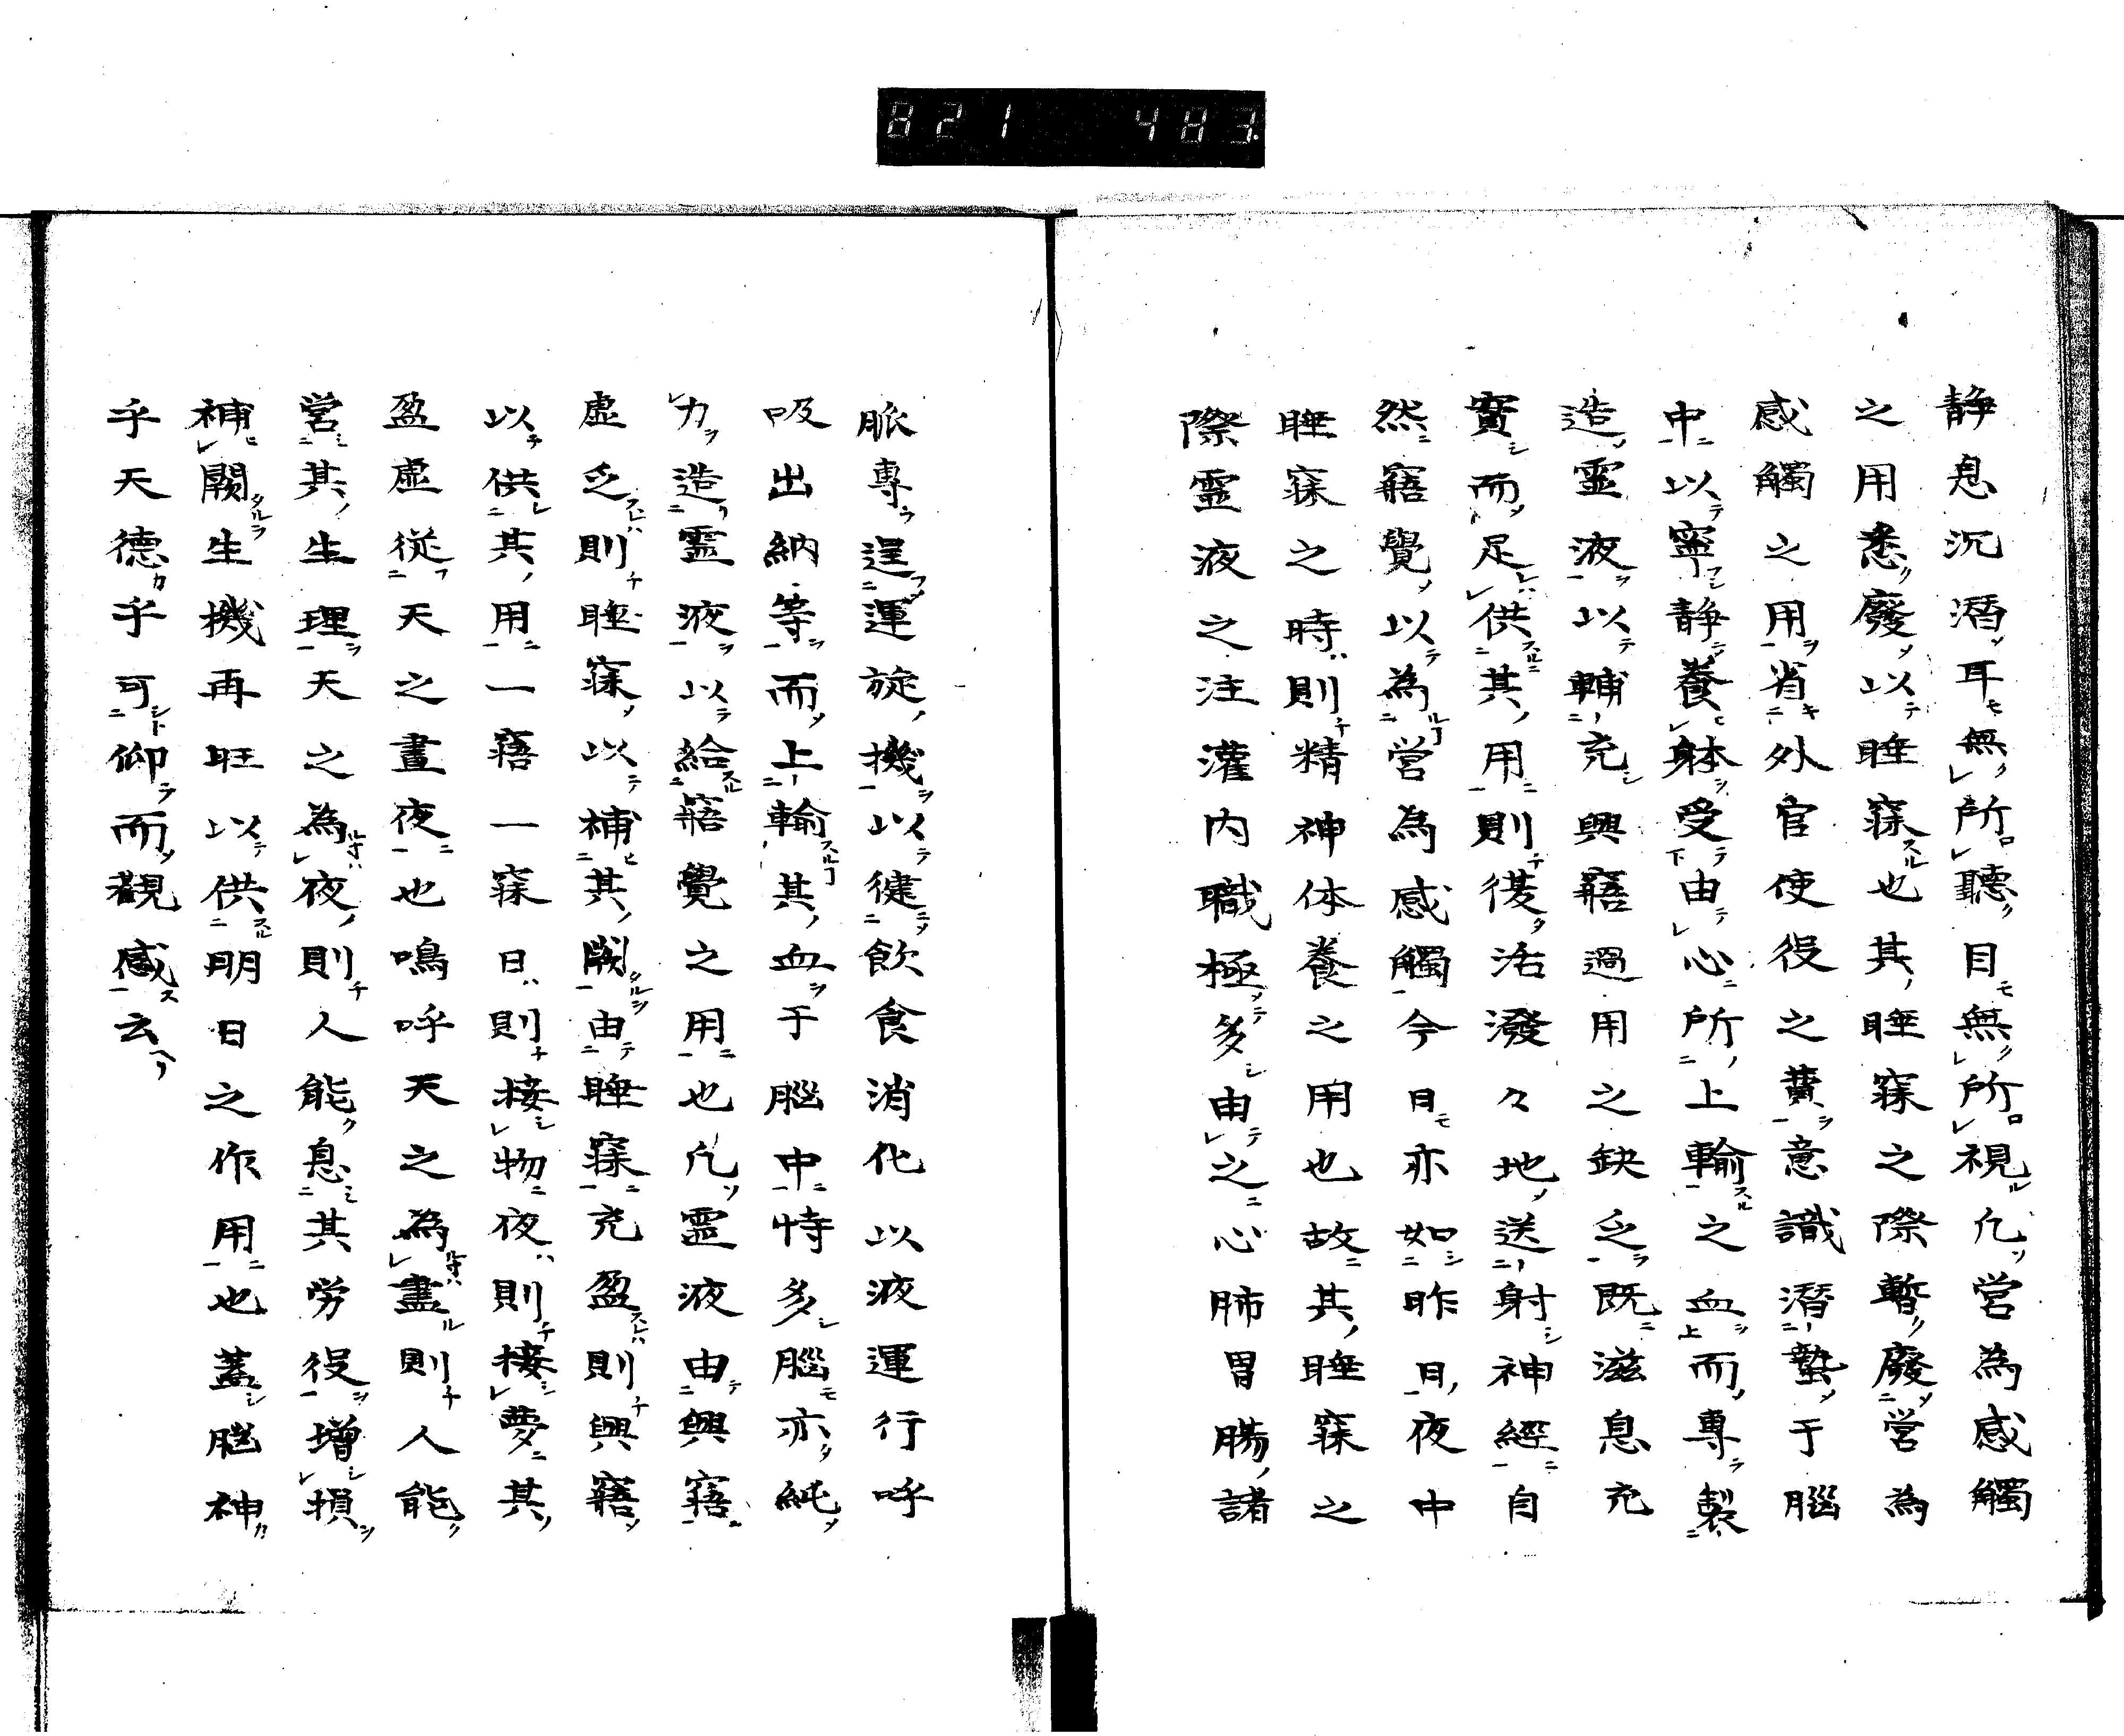 821 483
静息沉潛耳無所聽目無所視凢営為感觸
之用悉廢以睡寐也其睡寐之際暫廢営為
感觸之用省外官使役之費意識潛蟄于腦
中以寧静養躰受由心所上輸之血而專製
造靈液以輔充興寤過用之缺乏既滋息充
實而足供其用則復活潑々地送射神經自
然寤覺以為営為感觸今日亦如昨日夜中
睡寐之時則精神体養之用也故其睡寐之
際靈液之注灌内職極多由之心肺胃腸諸
脈專逞運旋機以健飲食消化以液運行呼
吸出納等而上輸其血于腦中特多腦亦純
力造靈液以給寤覺之用也凢靈液由興寤
虛乏則睡寐以補其闕由睡寐充盈則興寤
以供其用一寤一寐日則接物夜則接夢其
盈虛從天之晝夜也鳴呼天之為晝則人能
営其生理天之為夜則人能息其労役増損
補闕生機再旺以供明日之作用也蓋腦神
乎天德乎可仰而觀感云